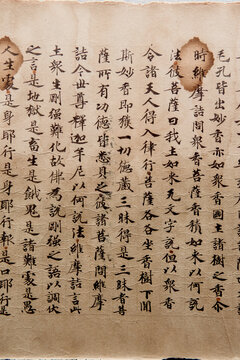 毛孔皆出妙香亦如衆香國土諸樹之香尒
時維摩詰問衆香菩薩香積如来以何說
法彼菩薩曰我土如来无文字說但以衆香
令諸天人得入律行菩薩各各坐香樹下聞
斯妙香即獲一切德藏三昧得是三昧者菩
薩所有功德皆悉具足彼諸菩薩問維摩
詰今世尊釋迦牟尼以何說法維摩詰言此
土衆生剛强難化故佛為說剛强之語以調伏
之言是地獄是畜生是餓鬼是諸難處是愚
人生處是身耶行是身耶行報是口耶行是